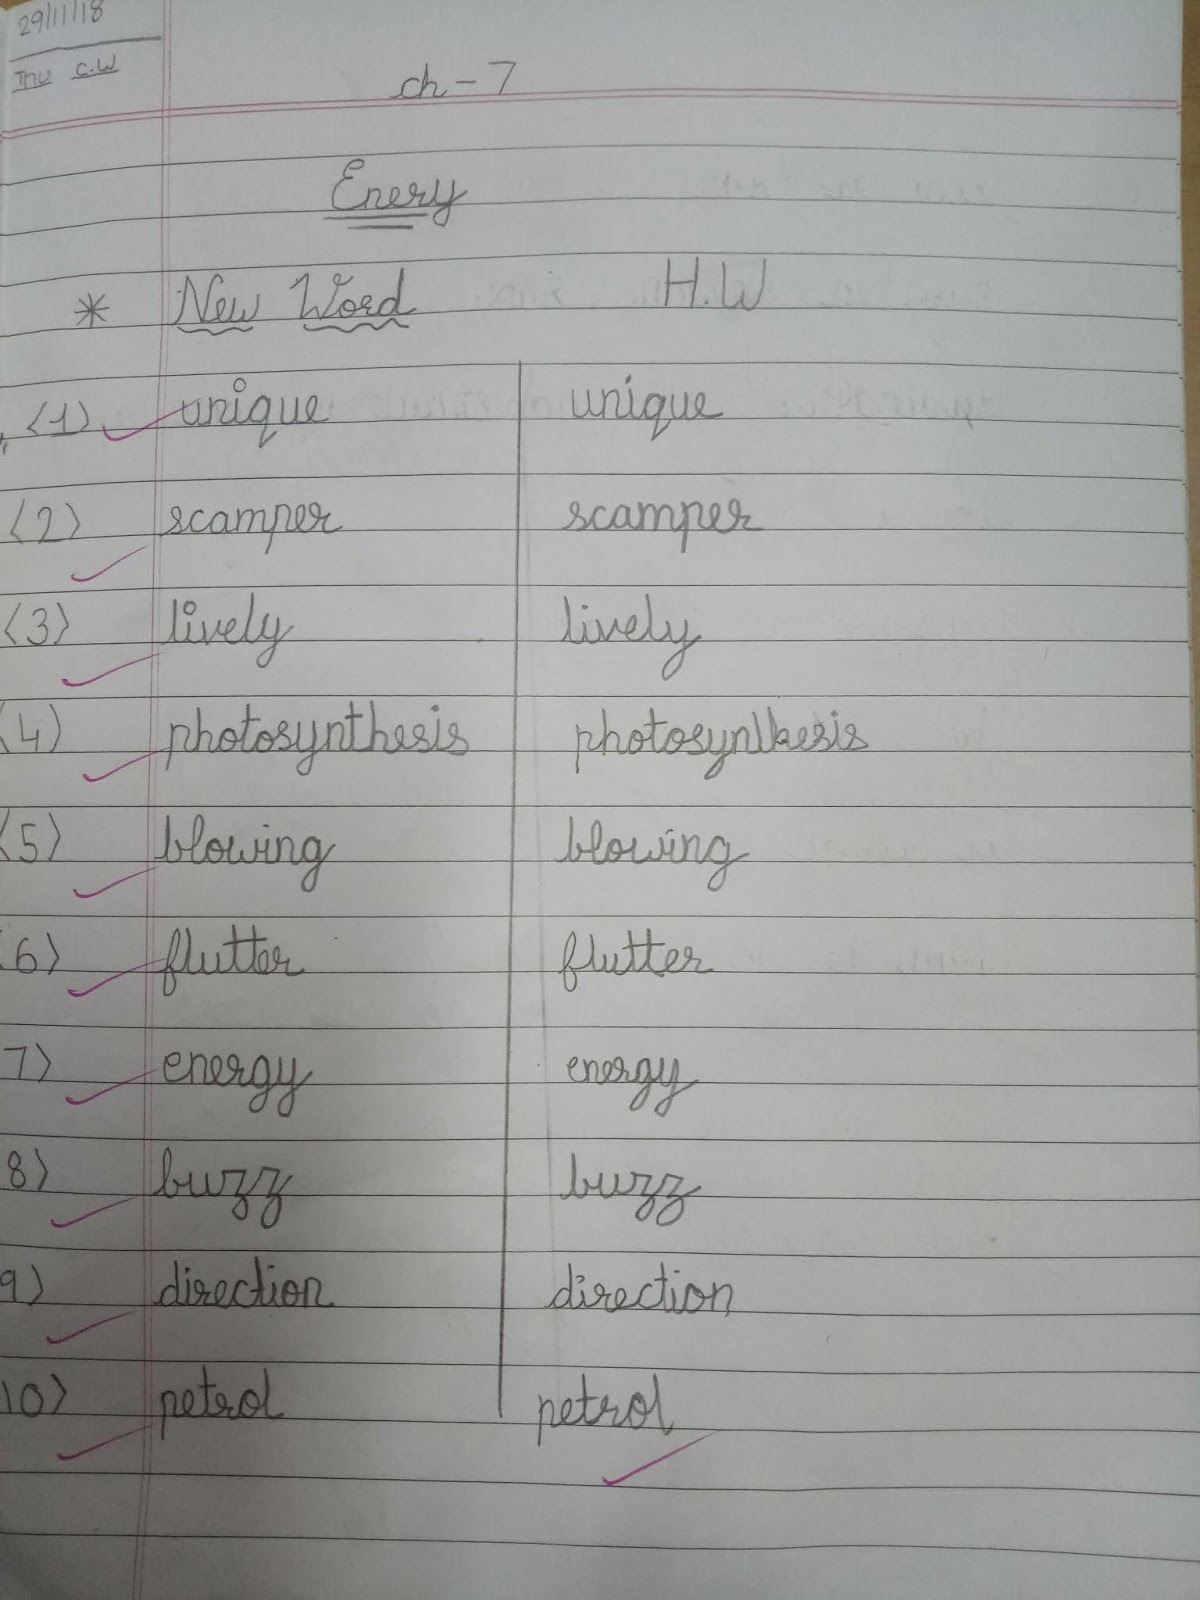 29/11/18
Thu C.W
ch - 7
Enery
* New Word H.W
(1) unique unique
(2) scamper scamper
(3) lively lively
(4) photosynthesis photosynthesis
(5) blowing blowing
(6) flutter flutter
7) energy energy
8) buzz buzz
9) direction direction
10) petrol petrol